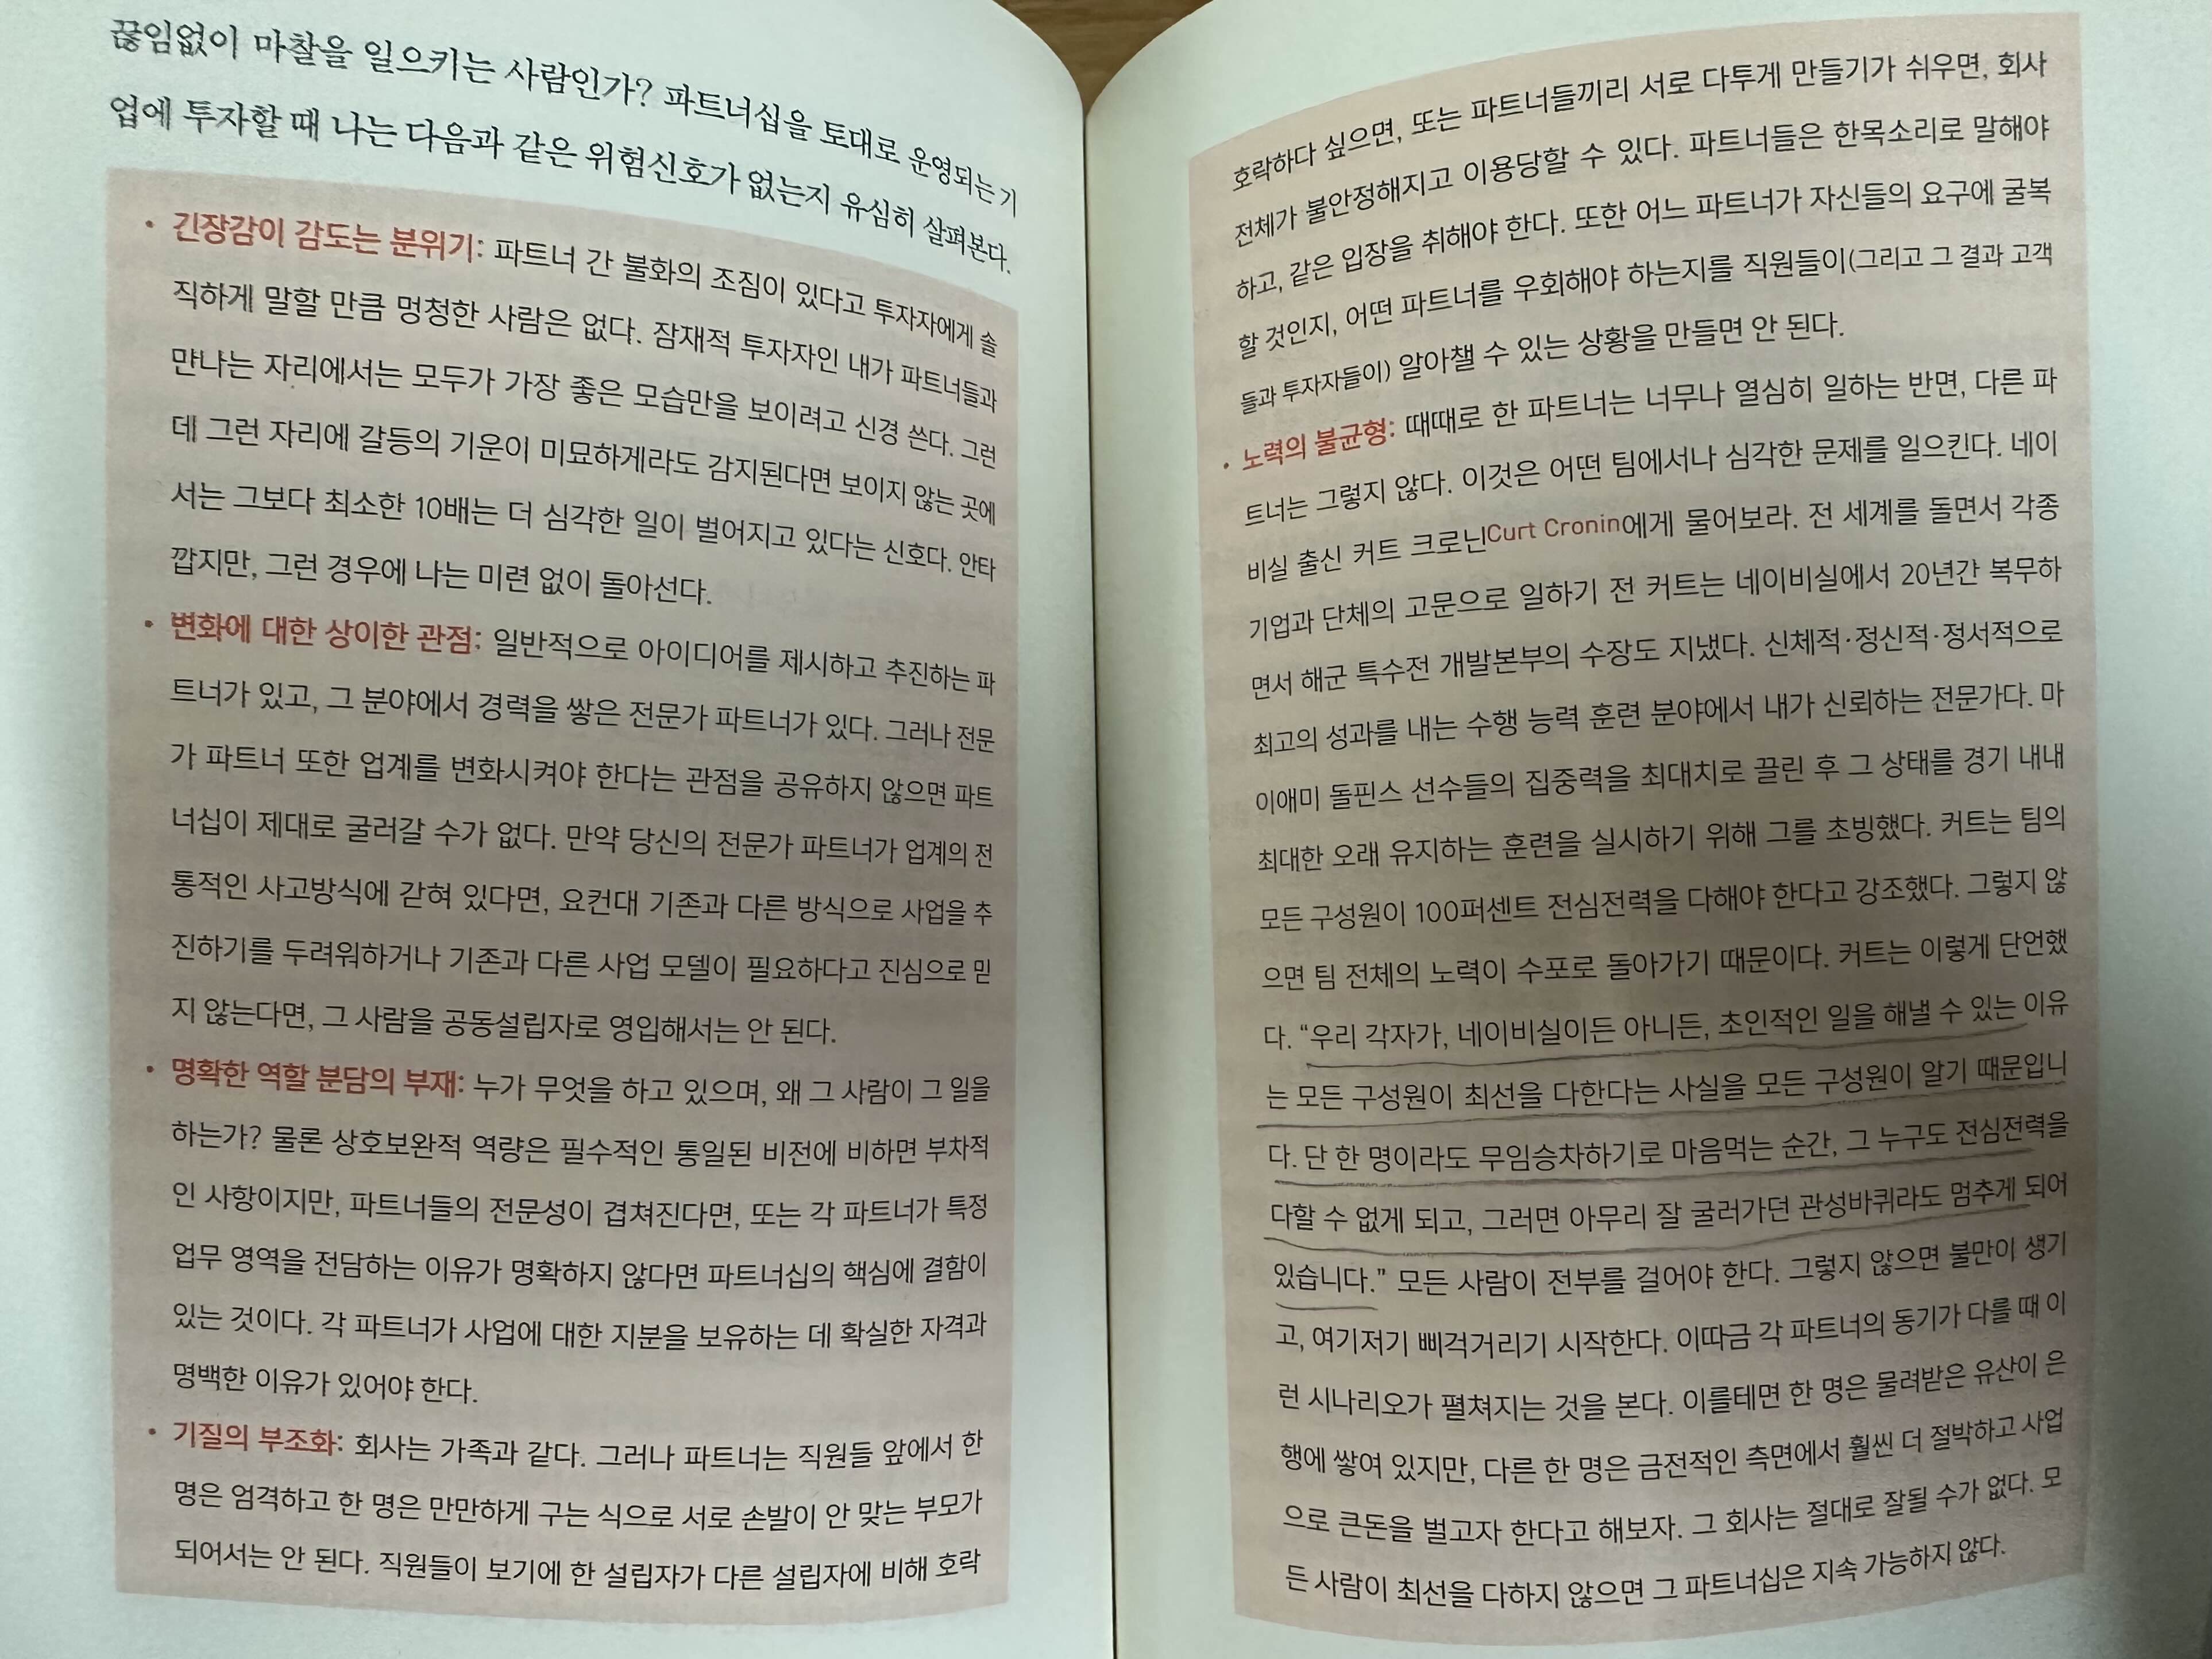 끊임없이 마찰을 일으키는 사람인가? 파트너십을 토대로 운영되는 기
업에 투자할 때 나는 다음과 같은 위험신호가 없는지 유심히 살펴본다.
• 긴장감이 감도는 분위기: 파트너 간 불화의 조짐이 있다고 투자자에게 솔
직하게 말할 만큼 멍청한 사람은 없다. 잠재적 투자자인 내가 파트너들과
만나는 자리에서는 모두가 가장 좋은 모습만을 보이려고 신경 쓴다. 그런
데 그런 자리에 갈등의 기운이 미묘하게라도 감지된다면 보이지 않는 곳에
서는 그보다 최소한 10배는 더 심각한 일이 벌어지고 있다는 신호다. 안타
깝지만, 그런 경우에 나는 미련 없이 돌아선다.
• 변화에 대한 상이한 관점: 일반적으로 아이디어를 제시하고 추진하는 파
트너가 있고, 그 분야에서 경력을 쌓은 전문가 파트너가 있다. 그러나 전문
가 파트너 또한 업계를 변화시켜야 한다는 관점을 공유하지 않으면 파트
너십이 제대로 굴러갈 수가 없다. 만약 당신의 전문가 파트너가 업계의 전
통적인 사고방식에 갇혀 있다면, 요컨대 기존과 다른 방식으로 사업을 추
진하기를 두려워하거나 기존과 다른 사업 모델이 필요하다고 진심으로 믿
지 않는다면, 그 사람을 공동설립자로 영입해서는 안 된다.
• 명확한 역할 분담의 부재: 누가 무엇을 하고 있으며, 왜 그 사람이 그 일을
하는가? 물론 상호보완적 역량은 필수적인 통일된 비전에 비하면 부차적
인 사항이지만, 파트너들의 전문성이 겹쳐진다면, 또는 각 파트너가 특정
업무 영역을 전담하는 이유가 명확하지 않다면 파트너십의 핵심에 결함이
있는 것이다. 각 파트너가 사업에 대한 지분을 보유하는 데 확실한 자격과
명백한 이유가 있어야 한다.
• 기질의 부조화: 회사는 가족과 같다. 그러나 파트너는 직원들 앞에서 한
명은 엄격하고 한 명은 만만하게 구는 식으로 서로 손발이 안 맞는 부모가
되어서는 안 된다. 직원들이 보기에 한 설립자가 다른 설립자에 비해 호락
호락하다 싶으면, 또는 파트너들끼리 서로 다투게 만들기가 쉬우면, 회사
전체가 불안정해지고 이용당할 수 있다. 파트너들은 한목소리로 말해야
하고, 같은 입장을 취해야 한다. 또한 어느 파트너가 자신들의 요구에 굴복
할 것인지, 어떤 파트너를 우회해야 하는지를 직원들이(그리고 그 결과 고객
들과 투자자들이) 알아챌 수 있는 상황을 만들면 안 된다.
• 노력의 불균형: 때때로 한 파트너는 너무나 열심히 일하는 반면, 다른 파
트너는 그렇지 않다. 이것은 어떤 팀에서나 심각한 문제를 일으킨다. 네이
비실 출신 커트 크로닌Curt Cronin에게 물어보라. 전 세계를 돌면서 각종
기업과 단체의 고문으로 일하기 전 커트는 네이비실에서 20년간 복무하
면서 해군 특수전 개발본부의 수장도 지냈다. 신체적·정신적·정서적으로
최고의 성과를 내는 수행 능력 훈련 분야에서 내가 신뢰하는 전문가다. 마
이애미 돌핀스 선수들의 집중력을 최대치로 끌린 후 그 상태를 경기 내내
최대한 오래 유지하는 훈련을 실시하기 위해 그를 초빙했다. 커트는 팀의
모든 구성원이 100퍼센트 전심전력을 다해야 한다고 강조했다. 그렇지 않
으면 팀 전체의 노력이 수포로 돌아가기 때문이다. 커트는 이렇게 단언했
다. “우리 각자가, 네이비실이든 아니든, 초인적인 일을 해낼 수 있는 이유
는 모든 구성원이 최선을 다한다는 사실을 모든 구성원이 알기 때문입니
다. 단 한 명이라도 무임승차하기로 마음먹는 순간, 그 누구도 전심전력을
다할 수 없게 되고, 그러면 아무리 잘 굴러가던 관성바퀴라도 멈추게 되어
있습니다.” 모든 사람이 전부를 걸어야 한다. 그렇지 않으면 불만이 생기
고, 여기저기 삐걱거리기 시작한다. 이따금 각 파트너의 동기가 다를 때 이
런 시나리오가 펼쳐지는 것을 본다. 이를테면 한 명은 물려받은 유산이 은
행에 쌓여 있지만, 다른 한 명은 금전적인 측면에서 훨씬 더 절박하고 사업
으로 큰돈을 벌고자 한다고 해보자. 그 회사는 절대로 잘될 수가 없다. 모
든 사람이 최선을 다하지 않으면 그 파트너십은 지속 가능하지 않다.